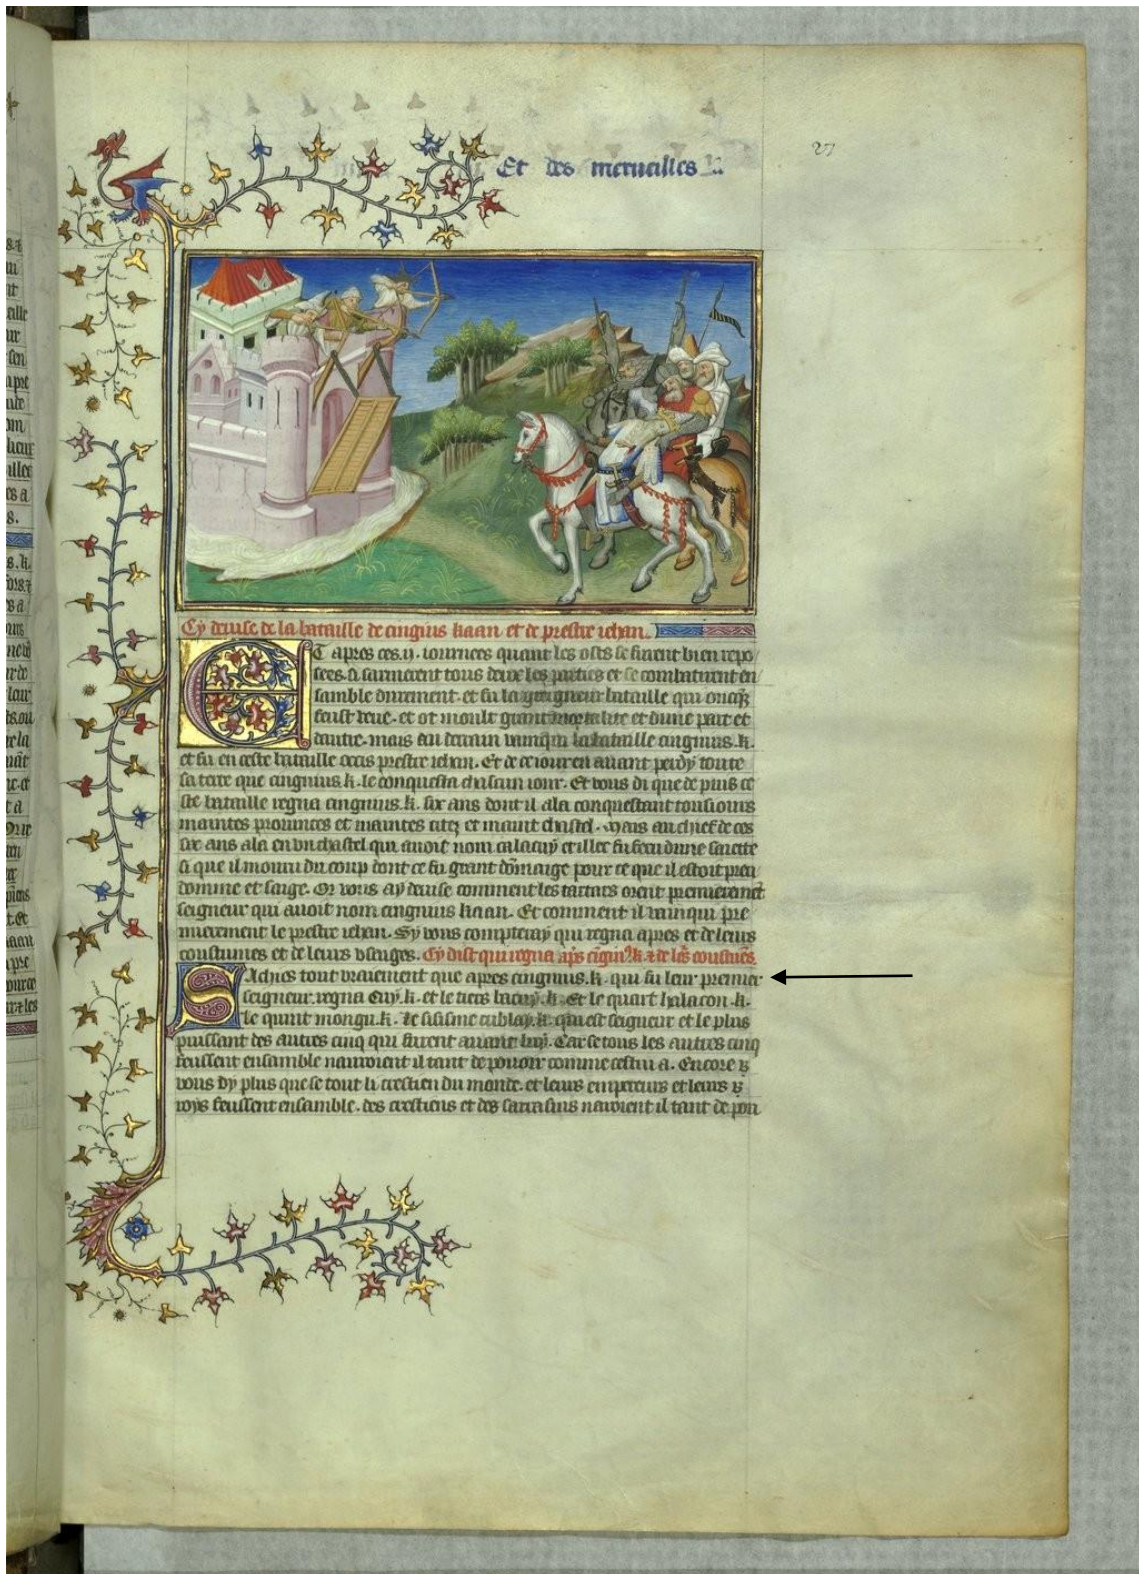 Et des merueilles
27
Cy deuise de la bataille de cinguis kaan et de prestre iehan.
Et apres ces .ij. iournees quant les osts se furent bien repo
sees. si sarmerent tous deux les parties et se combatirent en
samble durement. et fu la greigneur bataille qui onques
feust veue. et ot moult grant mortalite et dune part et
dautre. mais au derrain vainqui la bataille cinguis .k.
et fu en ceste bataille occis prestre iehan. Et de ce iour en auant perdy toute
sa terre que cinguis .k. le conquesta chascun iour. Et vous di que depuis ce
ste bataille regna cinguis .k. six ans dont il ala conquestant tousiours
maintes prouinces et maintes citez et maint chastel. Mais au chief de ces
six ans ala en vn chastel qui auoit nom calacuy et illec fu feru dune saiette
si que il mouru du coup dont ce fu grant dommaige pour ce que il estoit preu
domme et saige. Or vous ay deuise comment les tartars orent premierement
seigneur qui auoit nom cinguis kaan. Et comment il vainqui pre
mierement le prestre iehan. Sy vous compteray qui regna apres et de leurs
coustumes et de leurs vsaiges. Cy dist qui regna aps cinguis .k. et de lrs coustumes.
Sachies tout vraiement que apres cinguis .k. qui fu leur premier
seigneur. regna Cuy .k. et le tiers bacuy .k. Et le quart halacon .k.
le quint mongu .k. Le sisisme cublay .k. qui est seigneur et le plus
puissant des autres cinq qui furent auant luy. Car se tous les autres cinq
feussent ensamble nauroient il tant de pouoir comme cestui a. Encore
vous dy plus que se tout li crestien du monde. et leurs empereurs et leurs
roys feussent ensamble. des crestiens et des sarrasins nauroient il tant de pou